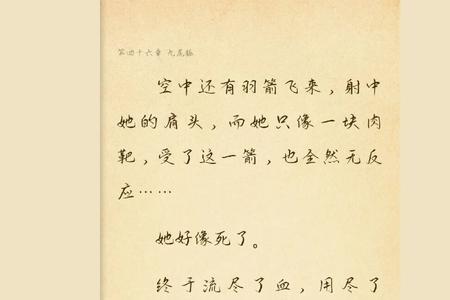 第四十六章 九尾狐
空中还有羽箭飞来，射中
她的肩头，而她只像一块肉
靶，受了这一箭，也全然无反
应……
她好像死了。
终于流尽了血，用尽了